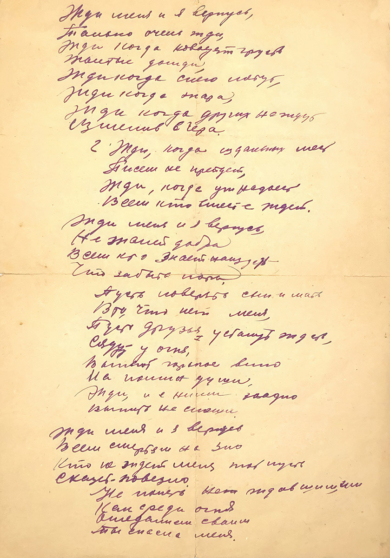 Жди меня и я вернусь,
Только очень жди,
Жди когда наводят грусть
Желтые дожди,
Жди когда снега метут,
Жди когда жара,
Жди когда других не ждут
Изменив вчера.
2 Жди, когда из дальних мест
Писем не придет,
Жди, когда уж надоест
Всем кто вместе ждет.
Жди меня и я вернусь,
Не желай добра
Всем кто знает наизусть
Что забыть пора
Пусть поверят сын и мать
В то, что нет меня,
Пусть друзья устанут ждать,
Сядут у огня,
Выпьют горькое вино
На помин души,
Жди, и с ними заодно
Выпить не спеши.
Жди меня и я вернусь
Всем смертям на зло
Кто не ждал меня тот пусть
Скажет повезло
Не понять не ждавшим им
Как среди огня
Ожиданием своим
Ты спасла меня.